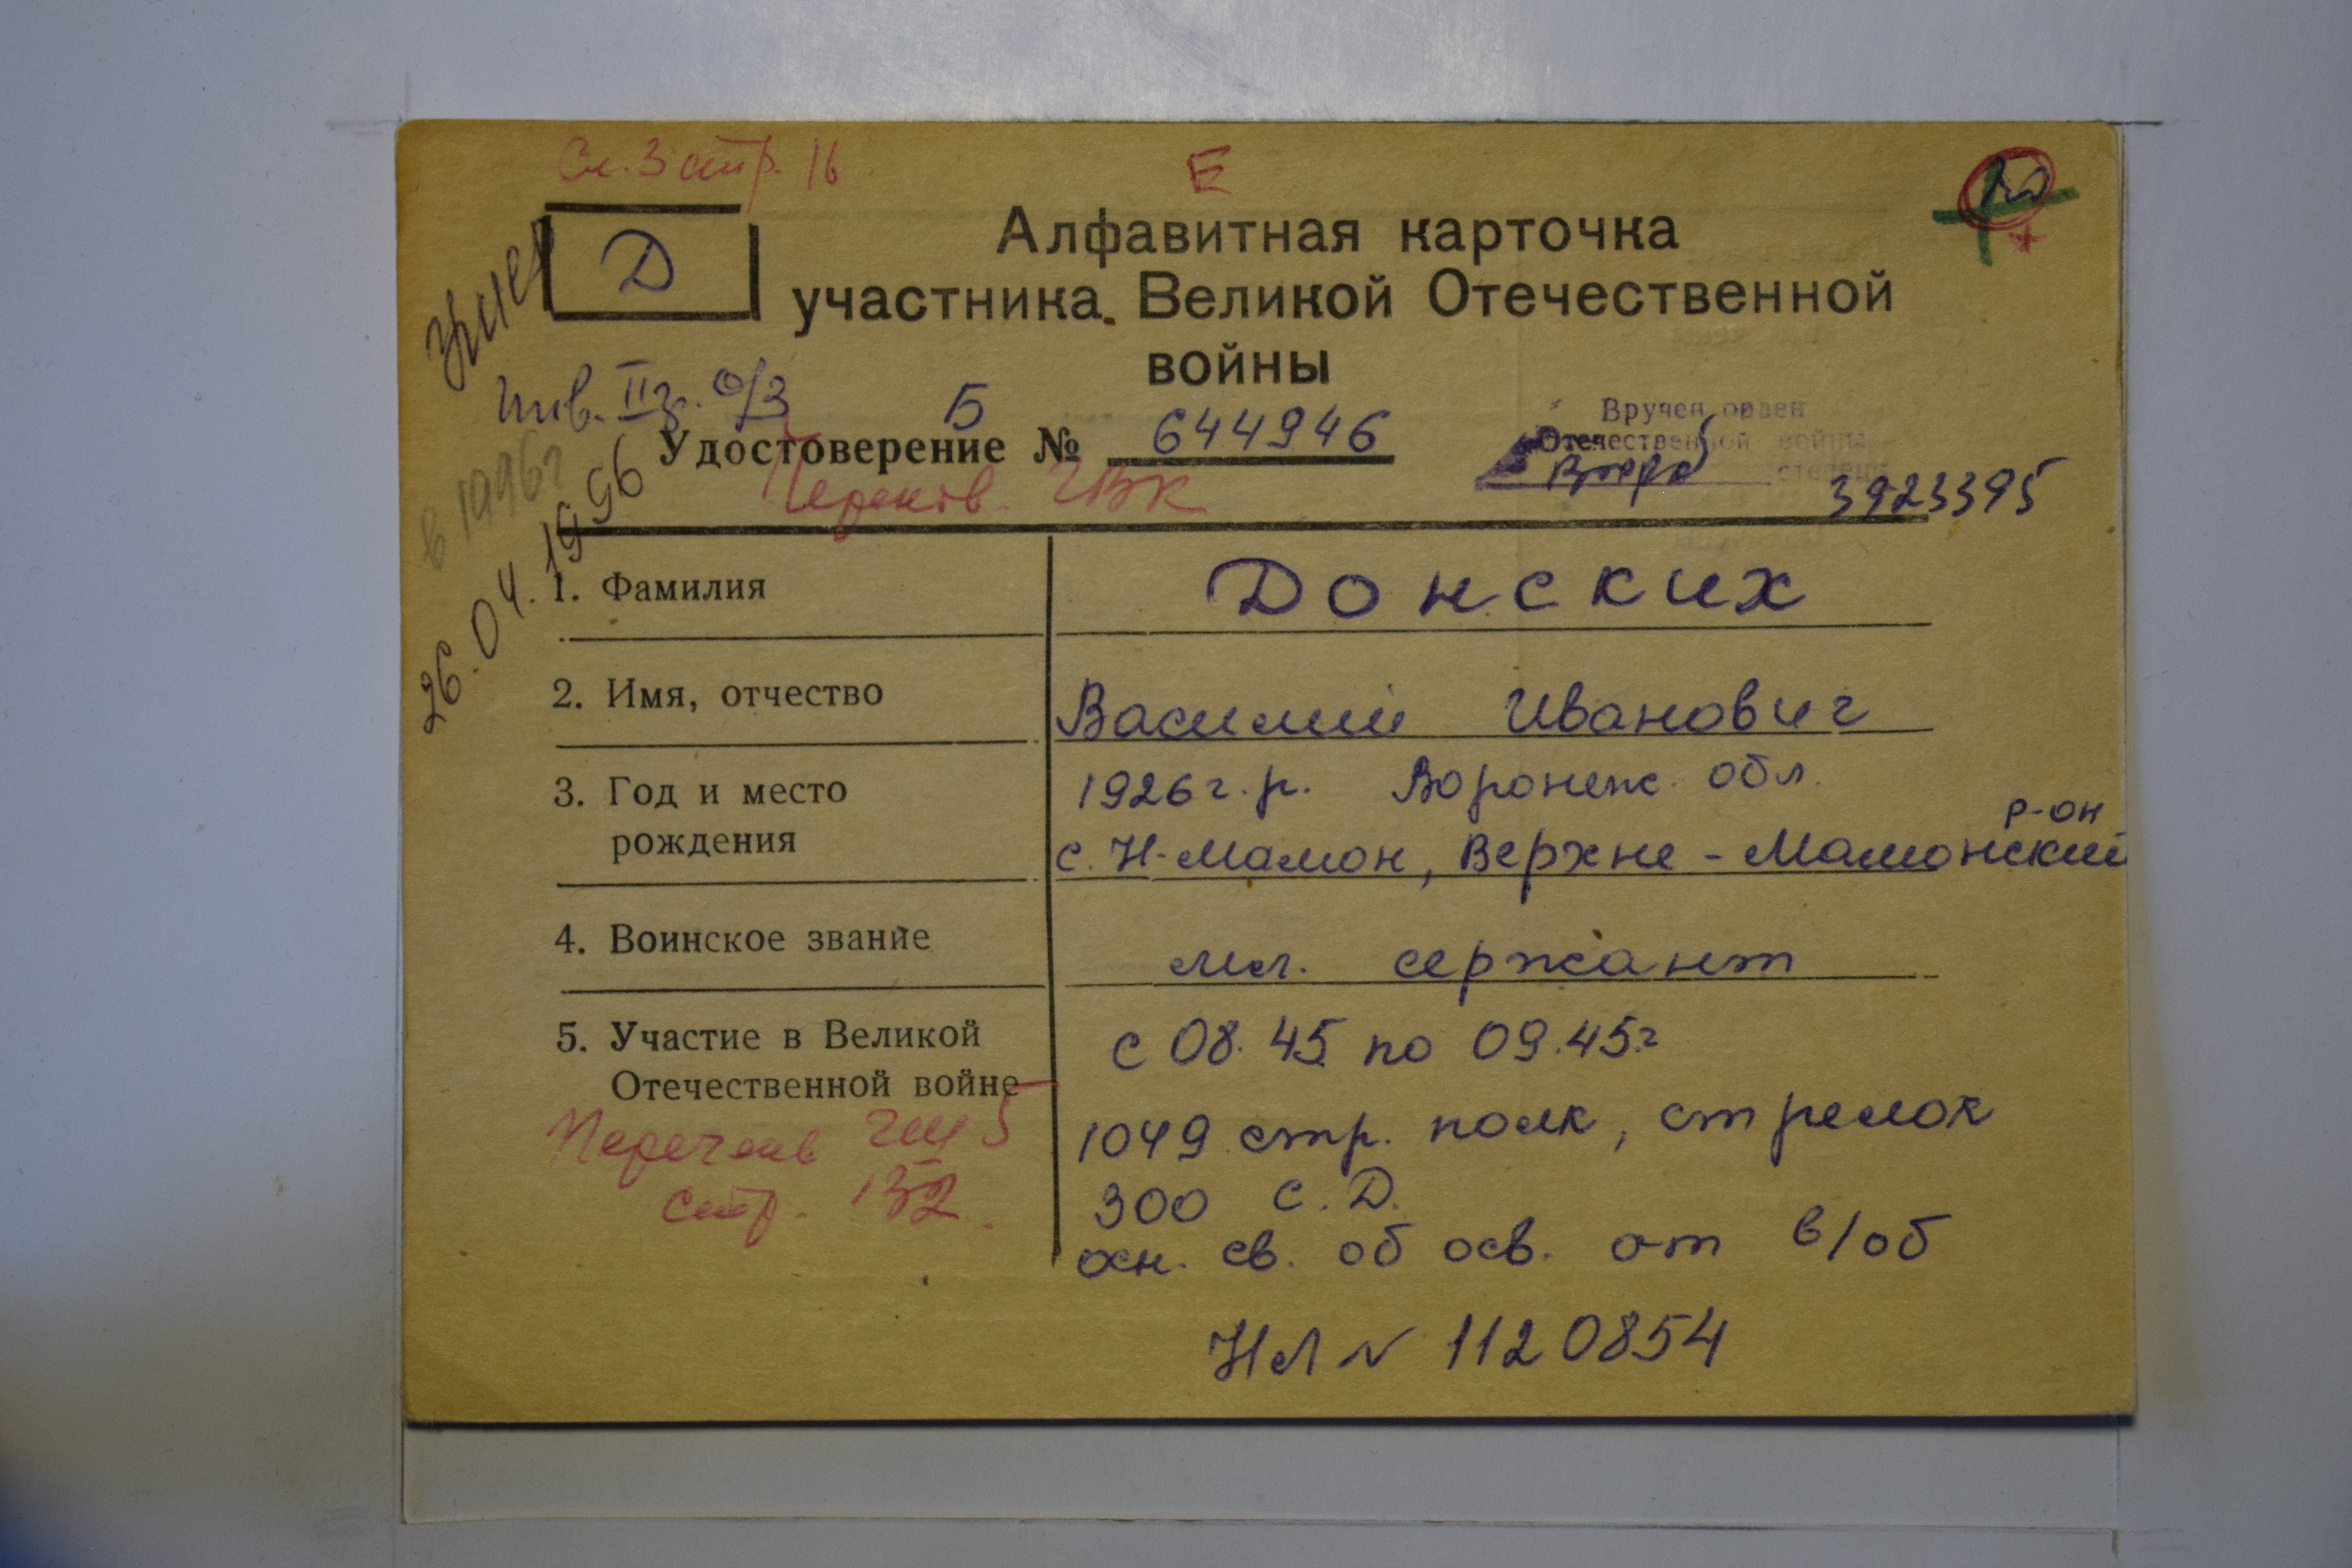 См. 3 стр. 16
Е
Д
Алфавитная карточка
участника Великой Отечественной
войны
умер
26.04.1996
в 1996г
инв. II гр. о/з
Б
Удостоверение № 644946
Вручен орден
Отечественной войны
степени
3923395
ГВК
1. Фамилия
Донских
2. Имя, отчество
Василий Иванович
3. Год и место
рождения
1926 г.р. Воронеж. обл.
с. Н-Мамон, Верхне-Мамонский
р-он
4. Воинское звание
мл. сержант
5. Участие в Великой
Отечественной войне
с 08.45 по 09.45г
1049 стр. полк, стрелок
300 с.Д.
осн. св. об осв. от в/об
Перечень ГШ 5
стр. 132.
НЛ № 1120854